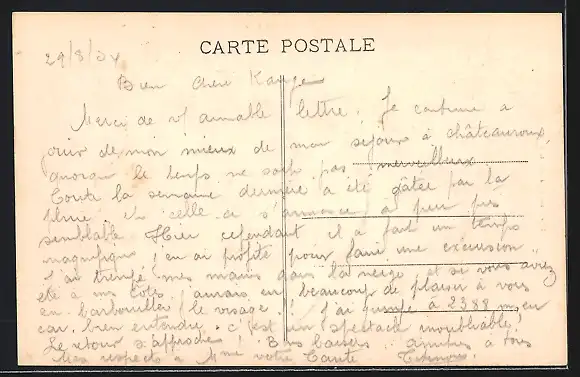 CARTE POSTALE
29/8/34
Bien chère
Merci de v/ aimable lettre. Je continue à
jouir de mon mieux de mon séjour à châteauroux,
quoique le temps ne soit pas merveilleux
Toute la semaine dernière a été gâtée par la
pluie et celle ci s'annonce à peu près
semblable Hier cependant il a fait un temps
magnifique j'en ai profité pour faire une excursion..
J'ai trempé mes mains dans la neige et si vous aviez
été à mes côtés j'aurais eu beaucoup de plaisir à vous
en barbouiller le visage! J'ai grimpé à 2388 m, en
car, bien entendu. c'est un spectacle inoubliable!
Le retour s'approche! Bons baisers.. amitiés à tous
Mes respects à Mme votre Tante